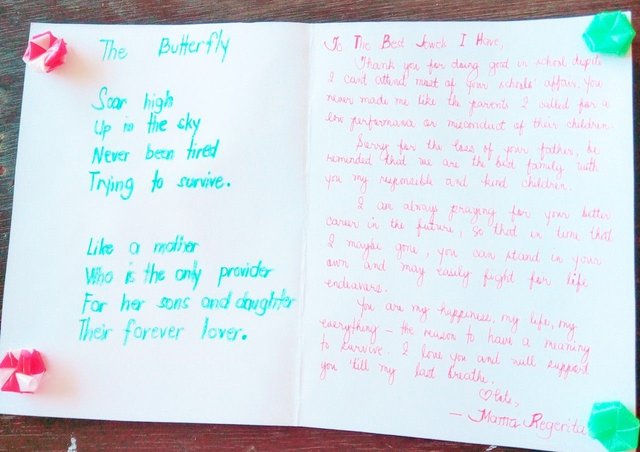 The Butterfly
Soar high
Up in the sky
Never been tired
Trying to survive.
Like a mother
Who is the only provider
For her sons and daughter
Their forever lover.
To The Best Jewels I Have,
Thank you for doing good in school dispite
I can't attend most of your schools' affair. You
never made me like the parents I called for a
low performance or misconduct of their children.
Sorry for the loss of your father, be
reminded that we are the best family with
you my responsible and kind children.
I am always praying for your better
career in the future, so that in time that
I maybe gone, you can stand in your
own and may easily fight for life
endeavors.
You are my happiness, my life, my
everything – the reason to have a meaning
to survive. I love you and will support
you 'till my last breathe.
– Mama Regerita